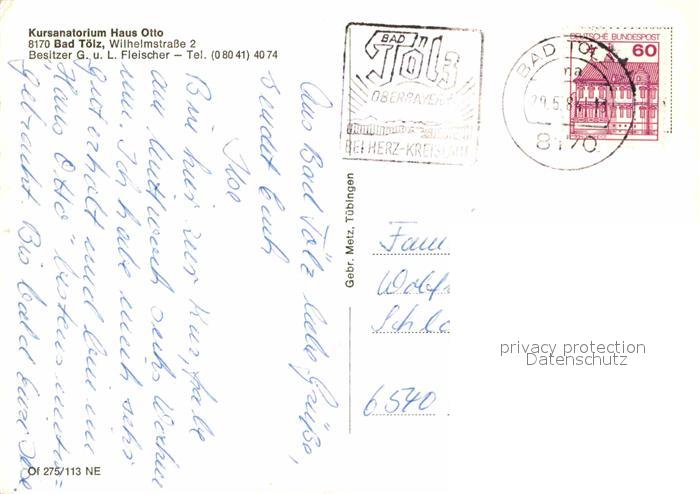 Kursanatorium Haus Otto
8170 Bad Tölz, Wilhelmstraße 2
Besitzer G. u. L. Fleischer – Tel. (0 80 41) 40 74
Aus Bad Tölz liebe Grüße,
sendet Euch
Ilse
Bin hier zur Kur, habe
am Mittwoch sechs Wochen
um. Ich habe mich sehr
gut erholt und bin im
"Haus Otto" bestens unter=
gebracht. Bis bald Eure Ilse.
Of 275/113 NE
Gebr. Metz, Tübingen
BAD
Tölz
OBERBAYERN
BEI HERZ-KREISLAUF
BAD TÖLZ
na
29.5.84
8170
DEUTSCHE BUNDESPOST
60
Fam
Wolf
Schlo
6540
privacy protection
Datenschutz